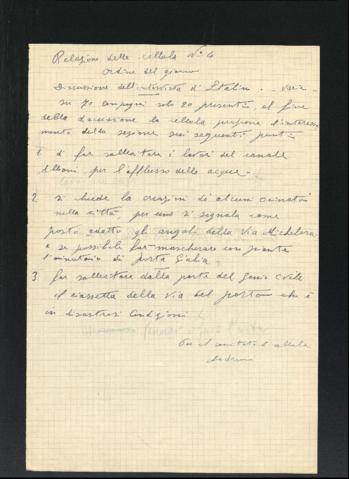 Relazione della cellula N° 4
Ordine del giorno
Discussione dell'intervista di Stalin .. varie -
su 70 compagni solo 20 presenti, al fine
della discussione la cellula propone l'interes-
mento della sezione sui seguenti punti
1 di far sollecitare i lavori del canale
Albani, per l'afflusso delle acque -
2 si chiede la creazione di alcuni orinatoi
nella città, per uno si segnala come
posto adatto gli angoli della Via Michelera
e se possibile far mascherare con piante
l'orinatoio di porta Giulia -
3 far sollecitare dalla parte del Genio Civile
il riassetto della Via del porto che è
in disastrose condizioni
Per il comitato di cellula